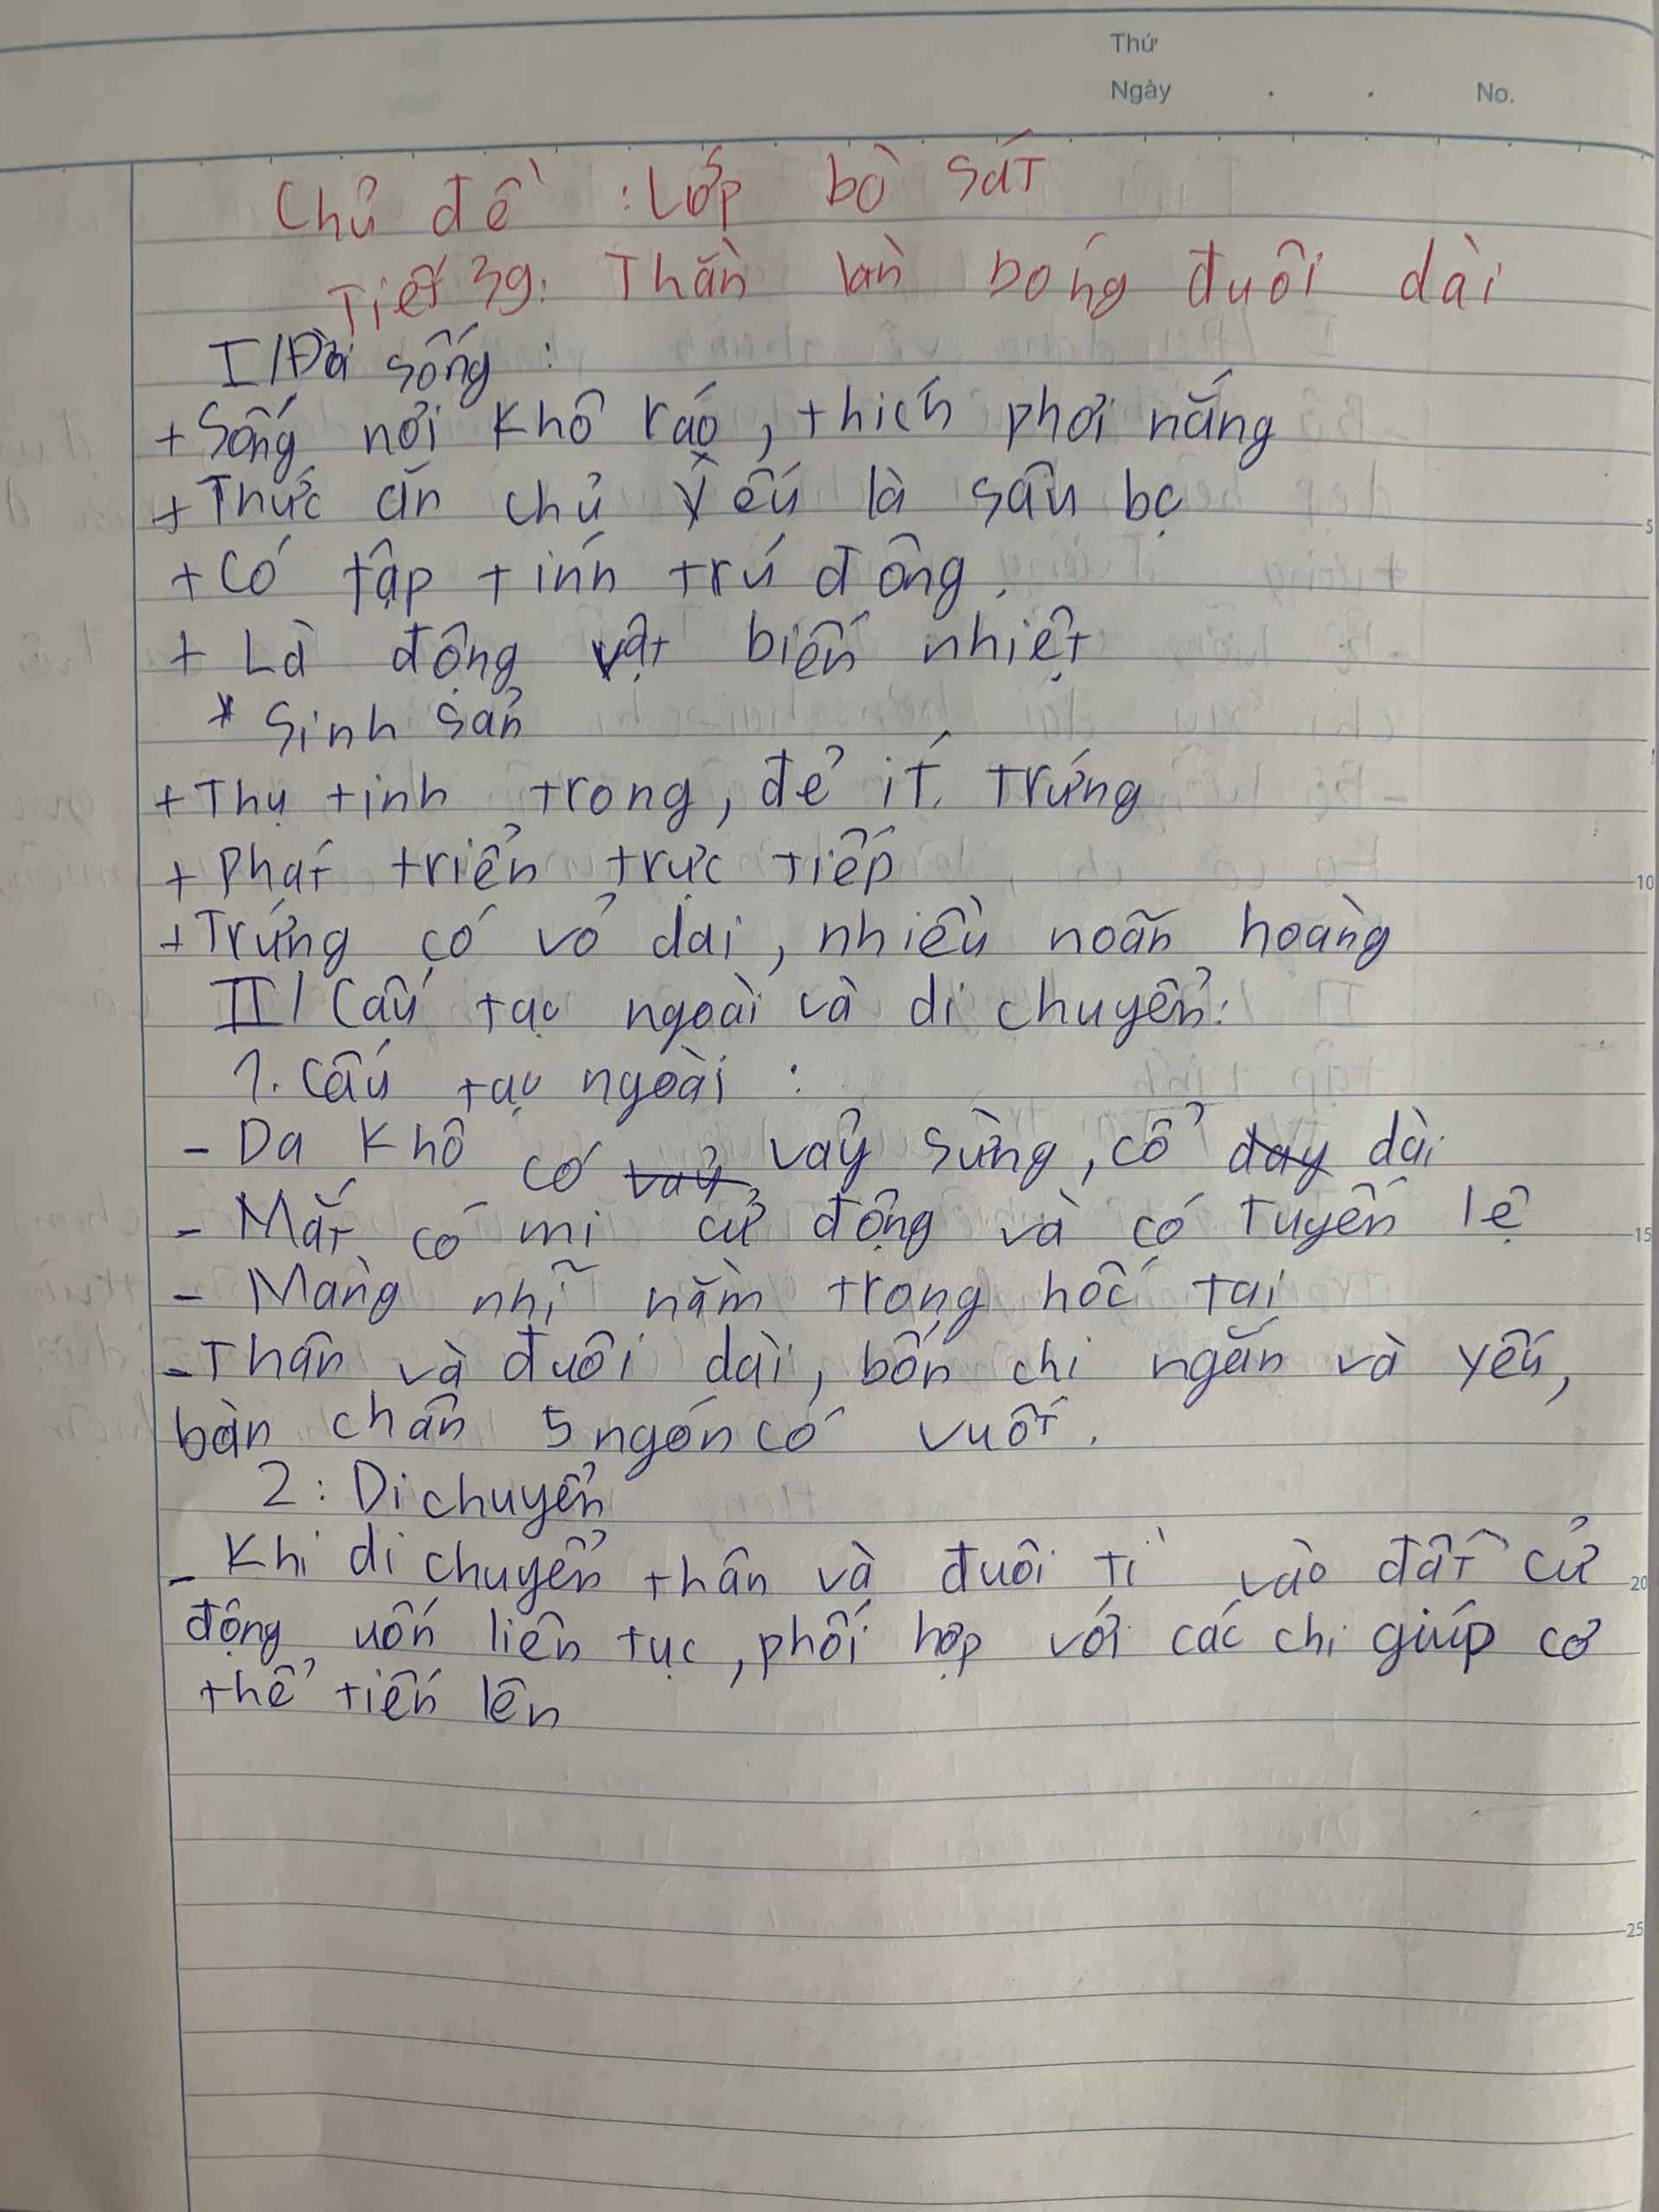 Thứ
Ngày . . No.
Chủ đề : Lớp bò sát
Tiết 39: Thằn lằn bóng đuôi dài
I/ Đời sống :
+ Sống nơi khô ráo, thích phơi nắng
+ Thức ăn chủ yếu là sâu bọ
+ Có tập tính trú đông.
+ Là động vật biến nhiệt
* Sinh sản
+ Thụ tinh trong, đẻ ít trứng
+ Phát triển trực tiếp
+ Trứng có vỏ dai, nhiều noãn hoàng
II/ Cấu tạo ngoài và di chuyển:
1. Cấu tạo ngoài :
- Da khô có vảy vảy sừng, cổ day dài
- Mắt có mi cử động và có tuyến lệ
- Màng nhĩ nằm trong hốc tai
- Thân và đuôi dài, bốn chi ngắn và yếu,
bàn chân 5 ngón có vuốt.
2: Di chuyển
- Khi di chuyển thân và đuôi tì vào đất cử
động uốn liên tục, phối hợp với các chi giúp cơ
thể tiến lên
5
10
15
20
25